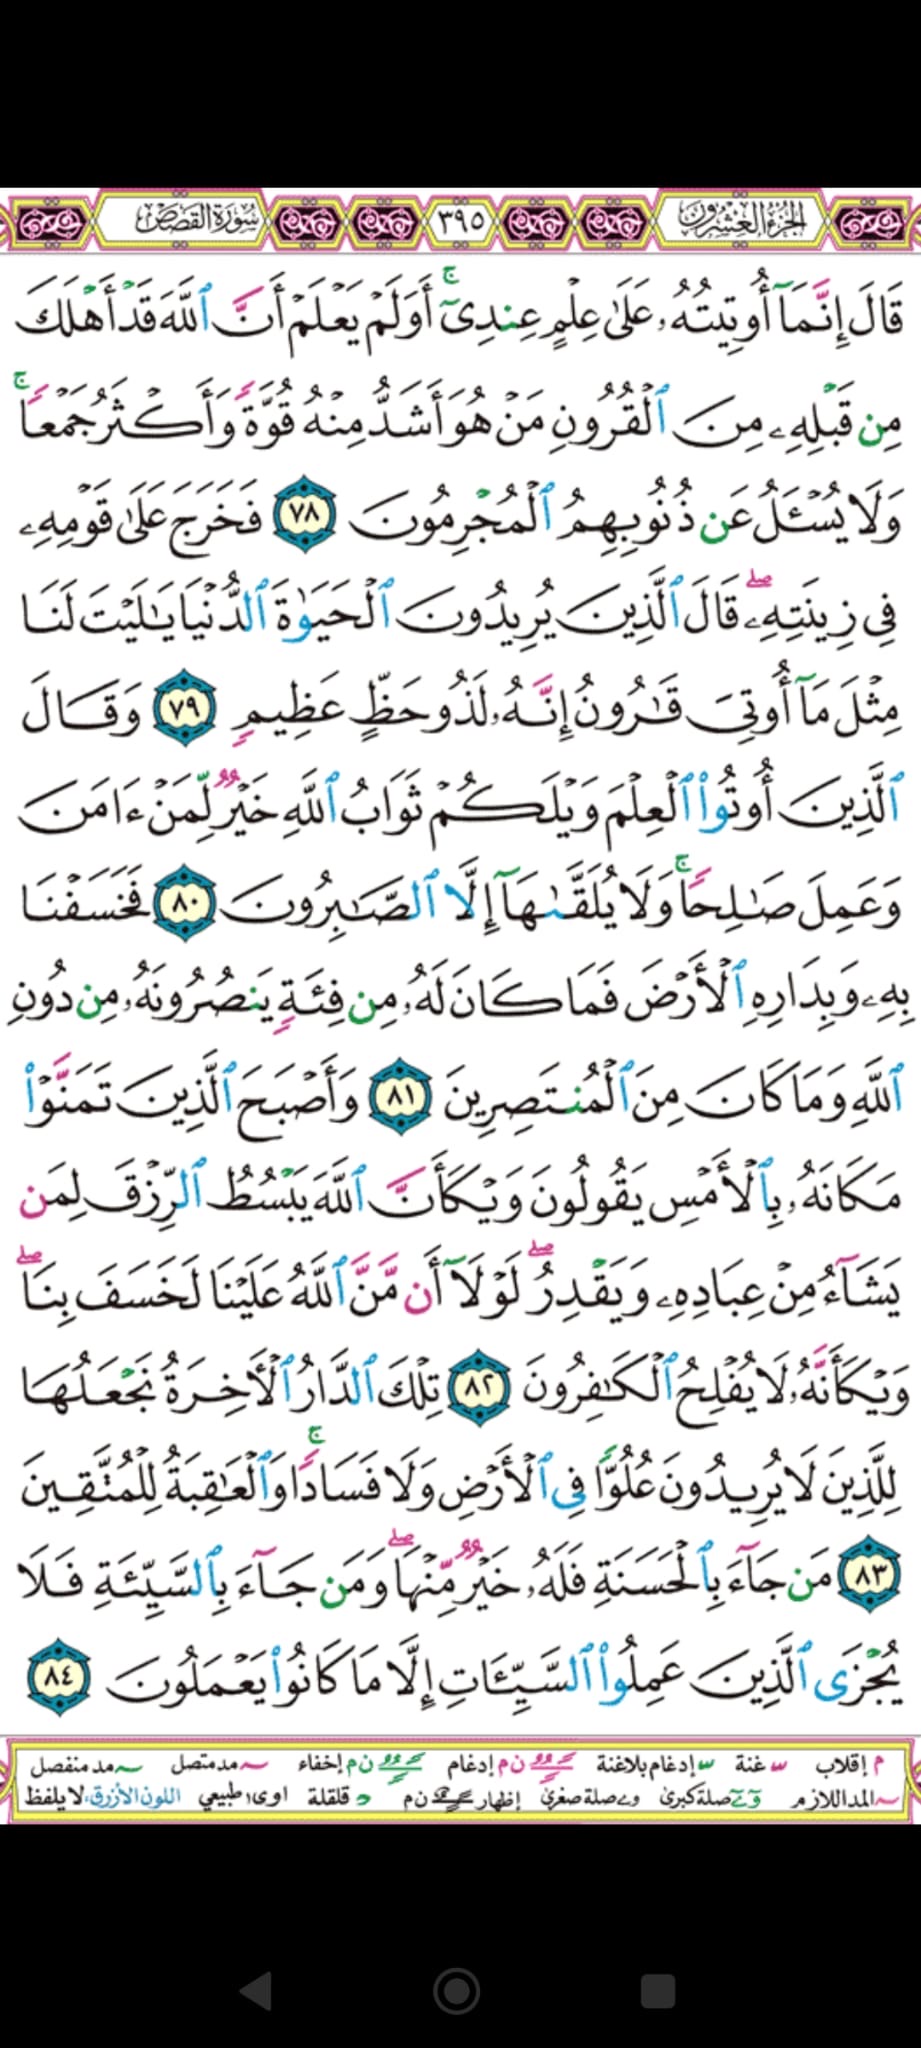 الجزء العشرون ٣٩٥ سورة القصص
قَالَ إِنَّمَآ أُوتِيتُهُۥ عَلَىٰ عِلْمٍ عِندِىٓ ۚ أَوَلَمْ يَعْلَمْ أَنَّ ٱللَّهَ قَدْ أَهْلَكَ
مِن قَبْلِهِۦ مِنَ ٱلْقُرُونِ مَنْ هُوَ أَشَدُّ مِنْهُ قُوَّةً وَأَكْثَرُ جَمْعًا ۚ
وَلَا يُسْـَٔلُ عَن ذُنُوبِهِمُ ٱلْمُجْرِمُونَ ٧٨ فَخَرَجَ عَلَىٰ قَوْمِهِۦ
فِى زِينَتِهِۦ ۖ قَالَ ٱلَّذِينَ يُرِيدُونَ ٱلْحَيَوٰةَ ٱلدُّنْيَا يَـٰلَيْتَ لَنَا
مِثْلَ مَآ أُوتِىَ قَـٰرُونُ إِنَّهُۥ لَذُو حَظٍّ عَظِيمٍ ٧٩ وَقَالَ
ٱلَّذِينَ أُوتُوا۟ ٱلْعِلْمَ وَيْلَكُمْ ثَوَابُ ٱللَّهِ خَيْرٌ لِّمَنْ ءَامَنَ
وَعَمِلَ صَـٰلِحًا ۚ وَلَا يُلَقَّىٰهَآ إِلَّا ٱلصَّـٰبِرُونَ ٨٠ فَخَسَفْنَا
بِهِۦ وَبِدَارِهِ ٱلْأَرْضَ فَمَا كَانَ لَهُۥ مِن فِئَةٍ يَنصُرُونَهُۥ مِن دُونِ
ٱللَّهِ وَمَا كَانَ مِنَ ٱلْمُنتَصِرِينَ ٨١ وَأَصْبَحَ ٱلَّذِينَ تَمَنَّوْا۟
مَكَانَهُۥ بِٱلْأَمْسِ يَقُولُونَ وَيْكَأَنَّ ٱللَّهَ يَبْسُطُ ٱلرِّزْقَ لِمَن
يَشَآءُ مِنْ عِبَادِهِۦ وَيَقْدِرُ ۖ لَوْلَآ أَن مَّنَّ ٱللَّهُ عَلَيْنَا لَخَسَفَ بِنَا ۖ
وَيْكَأَنَّهُۥ لَا يُفْلِحُ ٱلْكَـٰفِرُونَ ٨٢ تِلْكَ ٱلدَّارُ ٱلْأَخِرَةُ نَجْعَلُهَا
لِلَّذِينَ لَا يُرِيدُونَ عُلُوًّا فِى ٱلْأَرْضِ وَلَا فَسَادًا ۚ وَٱلْعَـٰقِبَةُ لِلْمُتَّقِينَ
٨٣ مَن جَآءَ بِٱلْحَسَنَةِ فَلَهُۥ خَيْرٌ مِّنْهَا ۖ وَمَن جَآءَ بِٱلسَّيِّئَةِ فَلَا
يُجْزَى ٱلَّذِينَ عَمِلُوا۟ ٱلسَّيِّـَٔاتِ إِلَّا مَا كَانُوا۟ يَعْمَلُونَ ٨٤
م إقلاب غنة إدغام بلاغنة ن م إدغام ن م إخفاء مد متصل مد منفصل
المد اللازم صلة كبرى صلة صغرى إظهار ن م قلقلة اوى طبيعي اللون الأزرق لا يلفظ